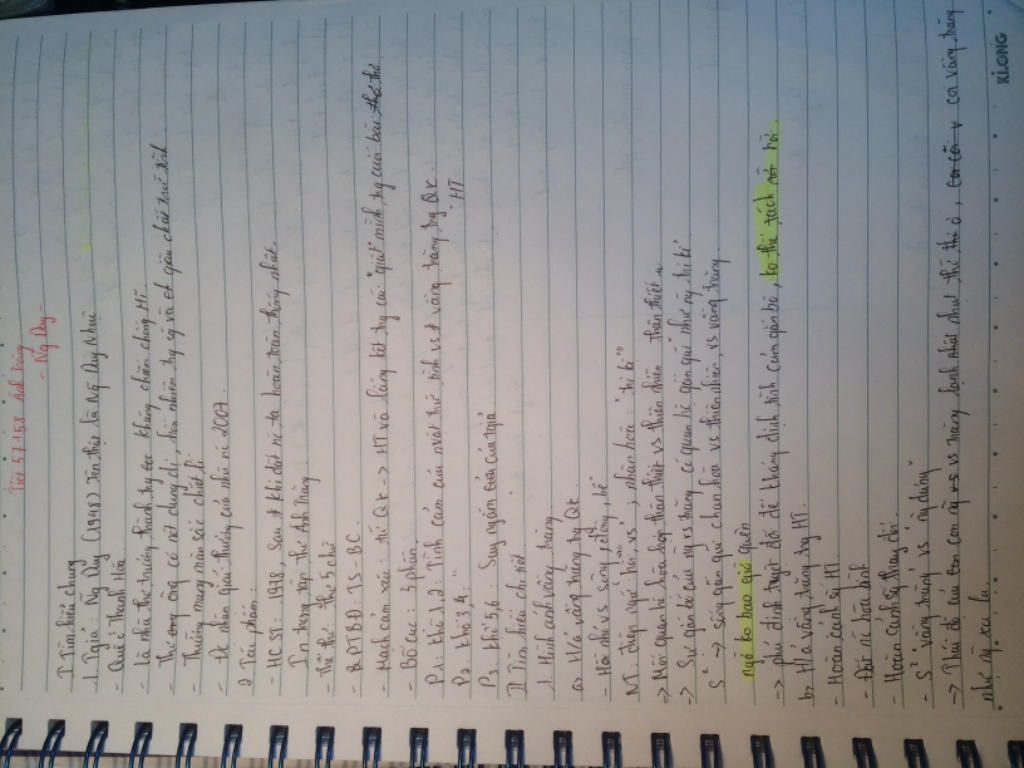 Tiết 57-158 Ánh trăng
- Ng Duy -
I Tìm hiểu chung
1. Tgiả: Ng Duy (1948) Tên thật là Ng Duy Nhuệ
- Quê Thanh Hóa
- Là nhà thơ trưởng thành trg tgc kháng chiến chống Mĩ.
- Thơ ông có nét dung dị, hồn nhiên trg sáng và giàu chất trữ tình
- Thường mang màu sắc chất lí
- Đc nhận giải thưởng của nhà nc 2007.
2 Tác phẩm:
- HCST: 1978, Sau khi đất nc ta hoàn toàn thống nhất.
In trong tập thơ Ánh Trăng
- Thể thơ: thơ 5 chữ
- PTBĐ: TS-BC
- Mạch cảm xúc: từ Qk -> HT và lắng kết trg cái "giật" mình trg cuối bài
- Bố cục: 3 phần
P1: khổ 1,2: Tình cảm của với vầng trăng trg Qk
P2: khổ 3,4: " HT
P3: khổ 5,6: Suy ngẫm của tgiả
II Tìm hiểu chi tiết
1. Hình ảnh vầng trăng
a. H/ả vầng trăng trg Qk
- Hồi nhỏ vs sông, đồng, bể
NT: điệp ngữ "hồi, vs", nhân hóa: "tri kỉ"
-> Mối quan hệ hòa hợp thân thiết vs thiên nhiên
-> Sự gắn bó của ng vs trăng, có quan hệ gần gũi như ng tri kỉ
S² -> sống gần gũi chan hòa vs thiên nhiên, vs vầng trăng
ngỡ ko bao giờ quên
-> phủ định tuyệt đối để khẳng định tình cảm gắn bó, ko thể tách rời.
b, H/ả vầng trăng trg HT.
- Hoàn cảnh HT
- Đất nc hòa bình
Hoàn cảnh sống thay đổi
- S² "vầng trăng" vs "ng dưng"
-> Thái độ của con ng vs vs trăng lạnh nhạt thờ ơ, coi vầng trăng
như ng xa lạ.
KLONG